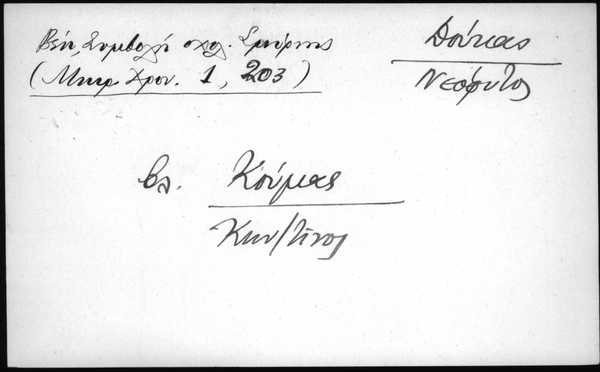 Βέη, Συμβολή σχολ. Σμύρνης
(Μικρ. Χρον. 1, 203)
Δούκας
Νεόφυτος
βλ. Κούμας
Κων/τίνος